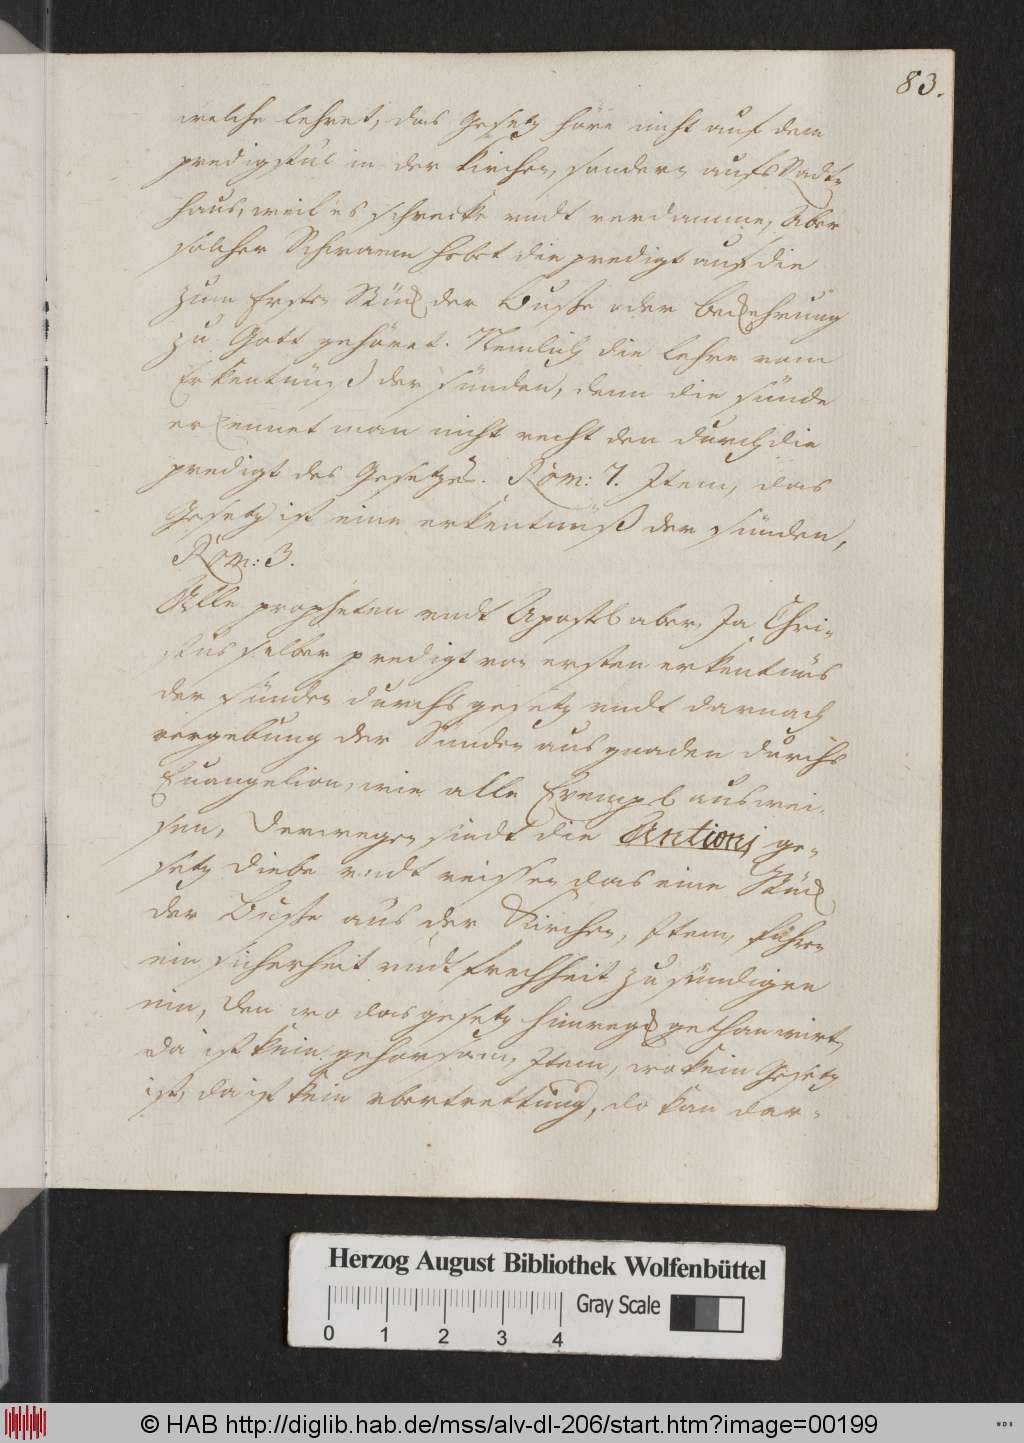 83.
welche lehret, das Gesetz höre nicht auf dem
predigstul in der Kirchen, sondern aufs Radt-
haus, weil es schrecke undt verdamme, Aber
solcher Schwarm hebet die predigt auf die
zum Ersten Stück der Busse oder beckehrung
zu Gott gehöret. Nemlich die lehre vom
Erkentnüß der sünden, denn die sünde
erkennet man nicht recht den durch die
predigt des Gesetzes. Röm: 7. Item, das
Gesetz ist eine erkentnüß der sünden,
Röm: 3.
Alle propheten undt Apostel aber, Ja Chri-
stus selber predigt von ersten erkentnüs
der sünden durchs gesetz undt darnach
vergebung der Sünden aus gnaden durchs
Euangelion, wie alle Exempel auswei-
sen, Derwegen sindt die Antioni ge-
setz diebe undt reissen das eine Stück
der Busse aus der Kirchen, Item, führen
ein sicherheit undt frechheit zu sündigen
ein, Den wo das gesetz hinwegk gethan wirt,
da ist kein gehorsam, Item, wo kein Gesetz
ist, da ist kein vbertrettung, do kan dar-
Herzog August Bibliothek Wolfenbüttel
Gray Scale
0 1 2 3 4
© HAB http://diglib.hab.de/mss/alv-dl-206/start.htm?image=00199